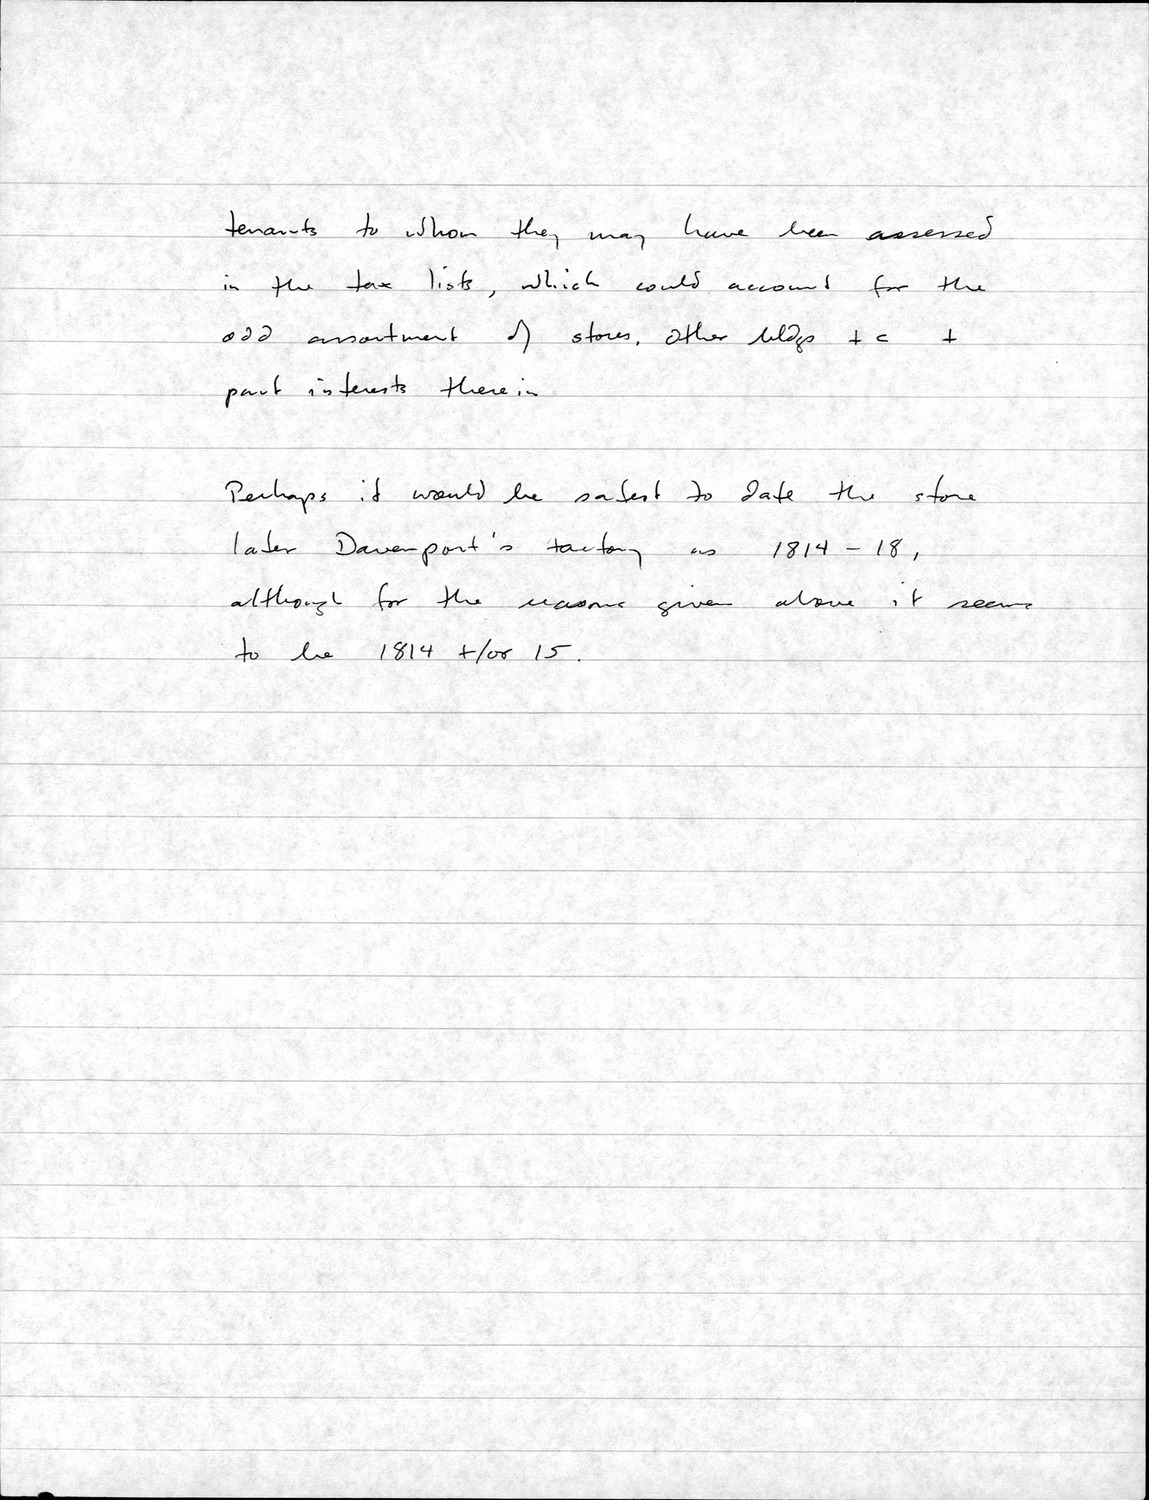 tenants to whom they may have been assessed
in the tax lists, which could account for the
odd assortment of stores, other bldgs +c +
part interests therein
Perhaps it would be safest to date the store
later Davenport's factory as 1814 - 18,
although for the reasons given above it seems
to be 1814 +/or 15.